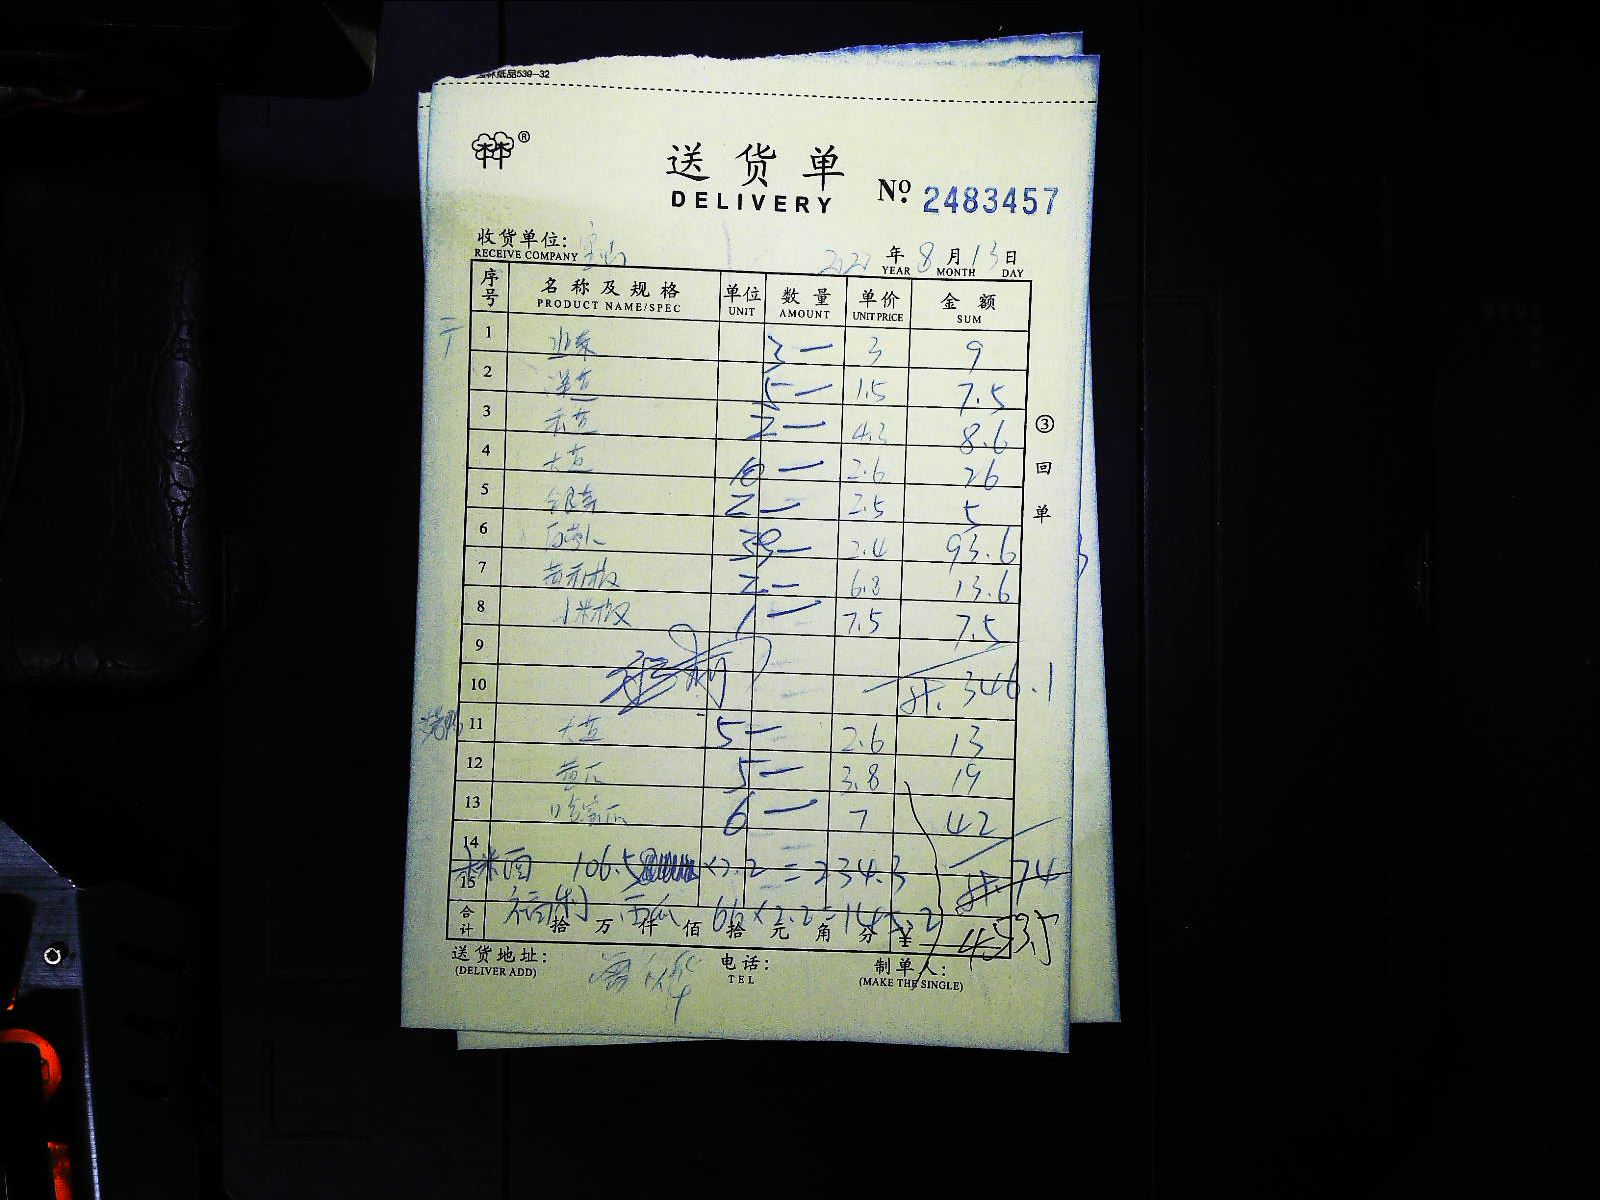 玉林纸品539-32
®
送货单
DELIVERY
Nº 2483457
收货单位: 宝山
RECEIVE COMPANY
2022 年 8 月 13 日
YEAR MONTH DAY
序号 名称及规格 单位 数量 单价 金额
PRODUCT NAME/SPEC UNIT AMOUNT UNIT PRICE SUM
1 韭菜 3 — 3 9
2 洋葱 5 — 1.5 7.5
3 香葱 2 — 4.3 8.6
4 大葱 10 — 2.6 26
5 2 — 2.5 5
6 白萝卜 39 — 2.4 93.6
7 2 — 6.8 13.6
8 小米椒 1 — 7.5 7.5
9
10 计. 346.1
11 大葱 5 — 2.6 13
12 黄瓜 5 — 3.8 19
13 6 — 7 42
14
106.5 × 2.2 = 234.3 计. 74
15
西瓜 66 × 2.2 = 145.2
合计 拾 万 仟 佰 拾 元 角 分 ¥ 453.5
送货地址: 电话: 制单人:
(DELIVER ADD) TEL (MAKE THE SINGLE)
③回单